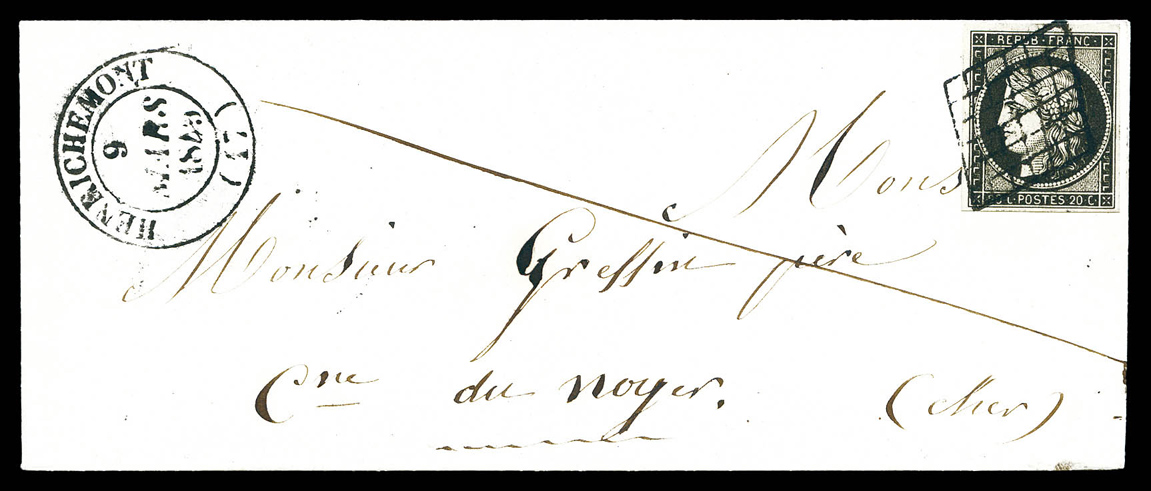 HENRICHEMONT (17)
9
MARS
1849
REPUB · FRANC ·
20 C · POSTES 20 C ·
Mons
Monsieur Gressin père
Cne du noyer.
(cher)